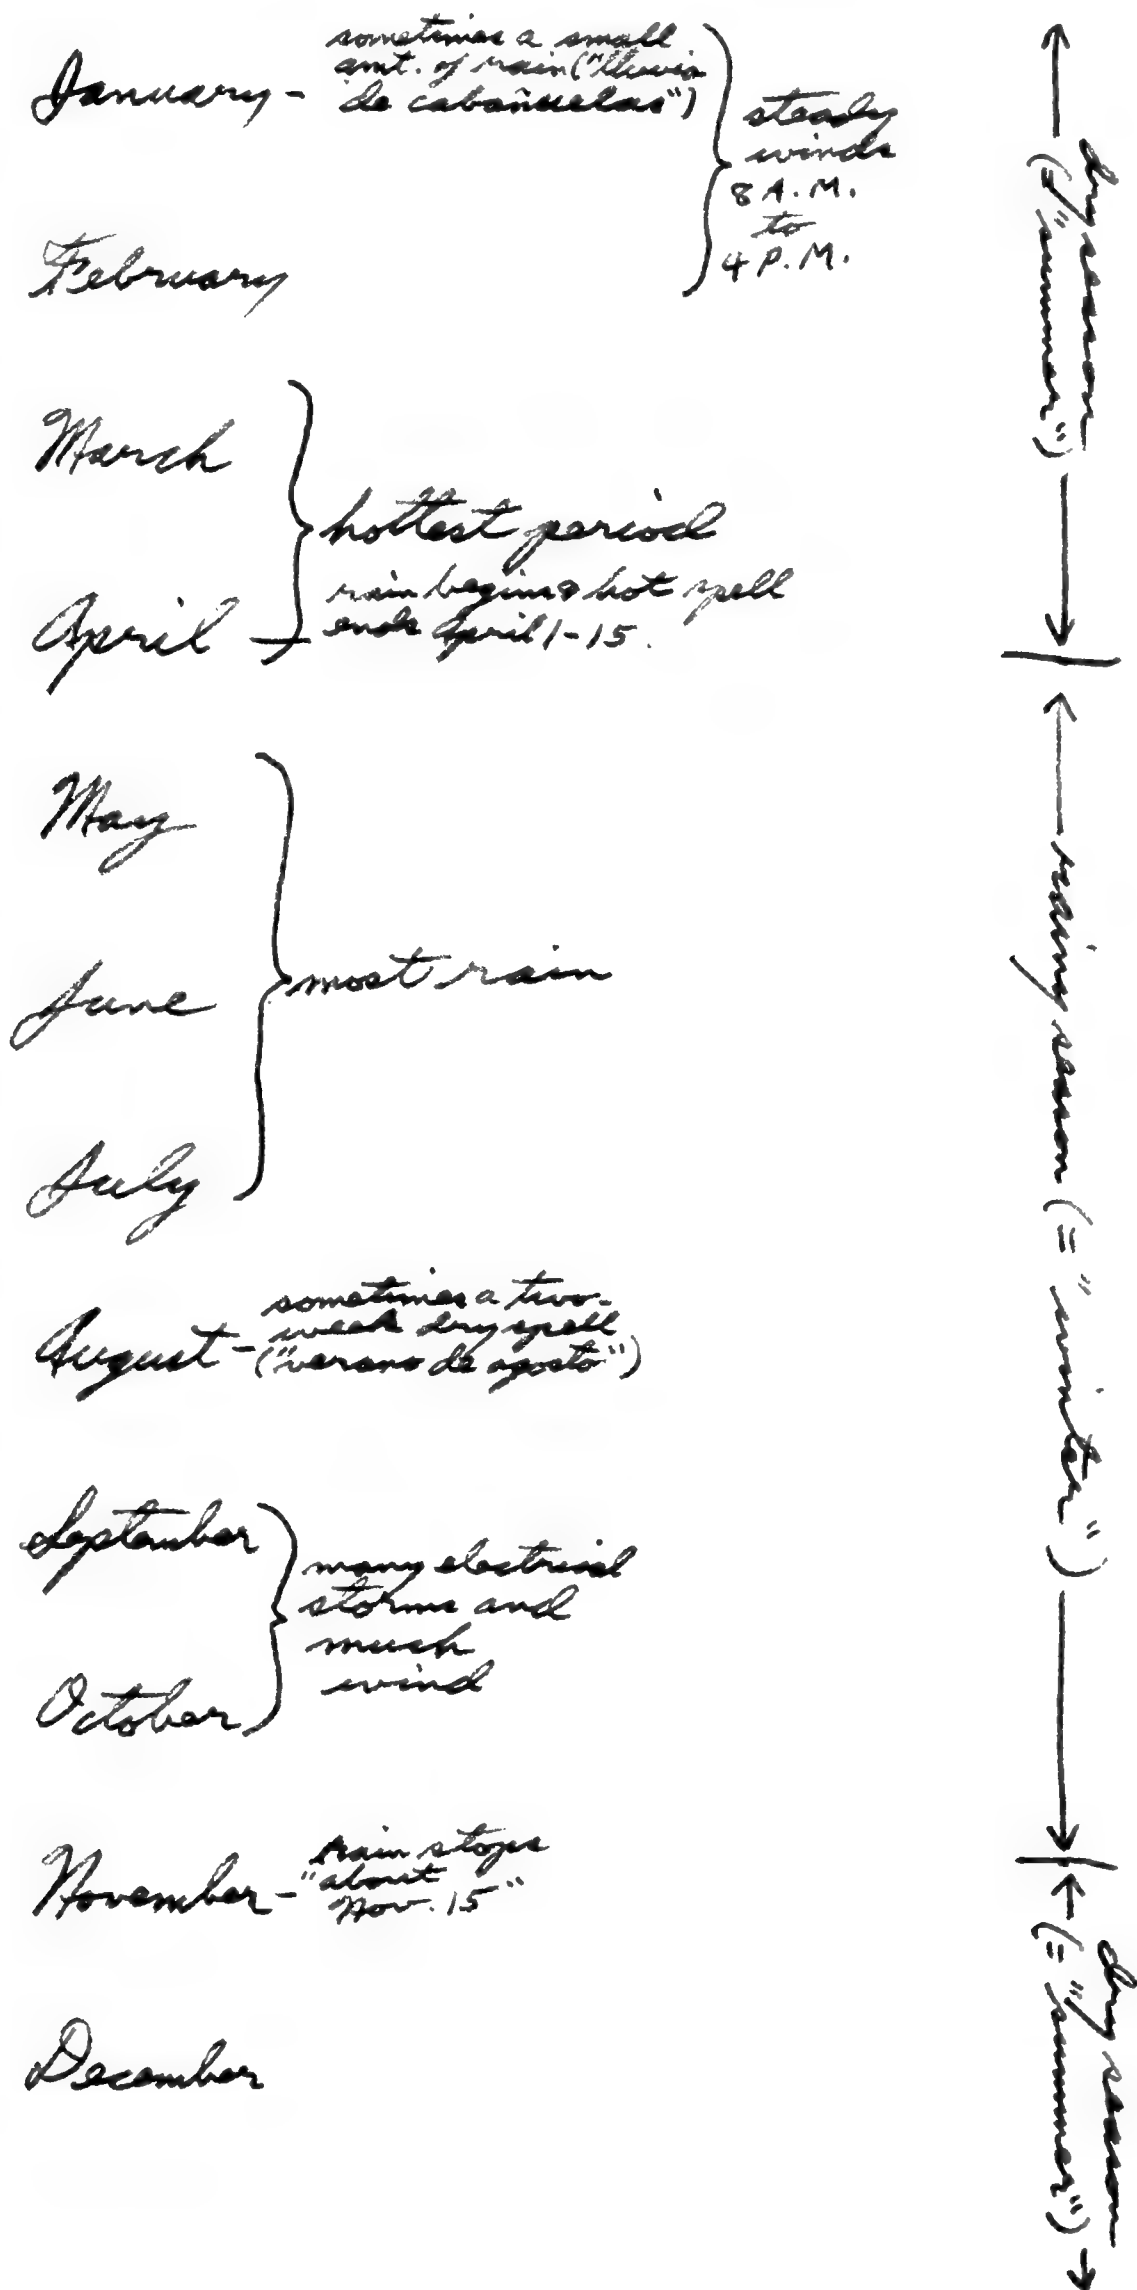 sometimes a small
amt. of rain ("lluvia
January - de cabañuelas")
steady
winds
8 A.M.
to
4 P.M.
February
March
hottest period
rain begins & hot spell
April - ends April 1-15.
May
June
most rain
July
sometimes a two-
week dry spell
August - ("verano de agosto")
September
many electrical
storms and
much
wind
October
rain stops
November - "about
Nov. 15"
December
dry season
(= "summer")
rainy season (= "winter")
dry season
(= "summer")